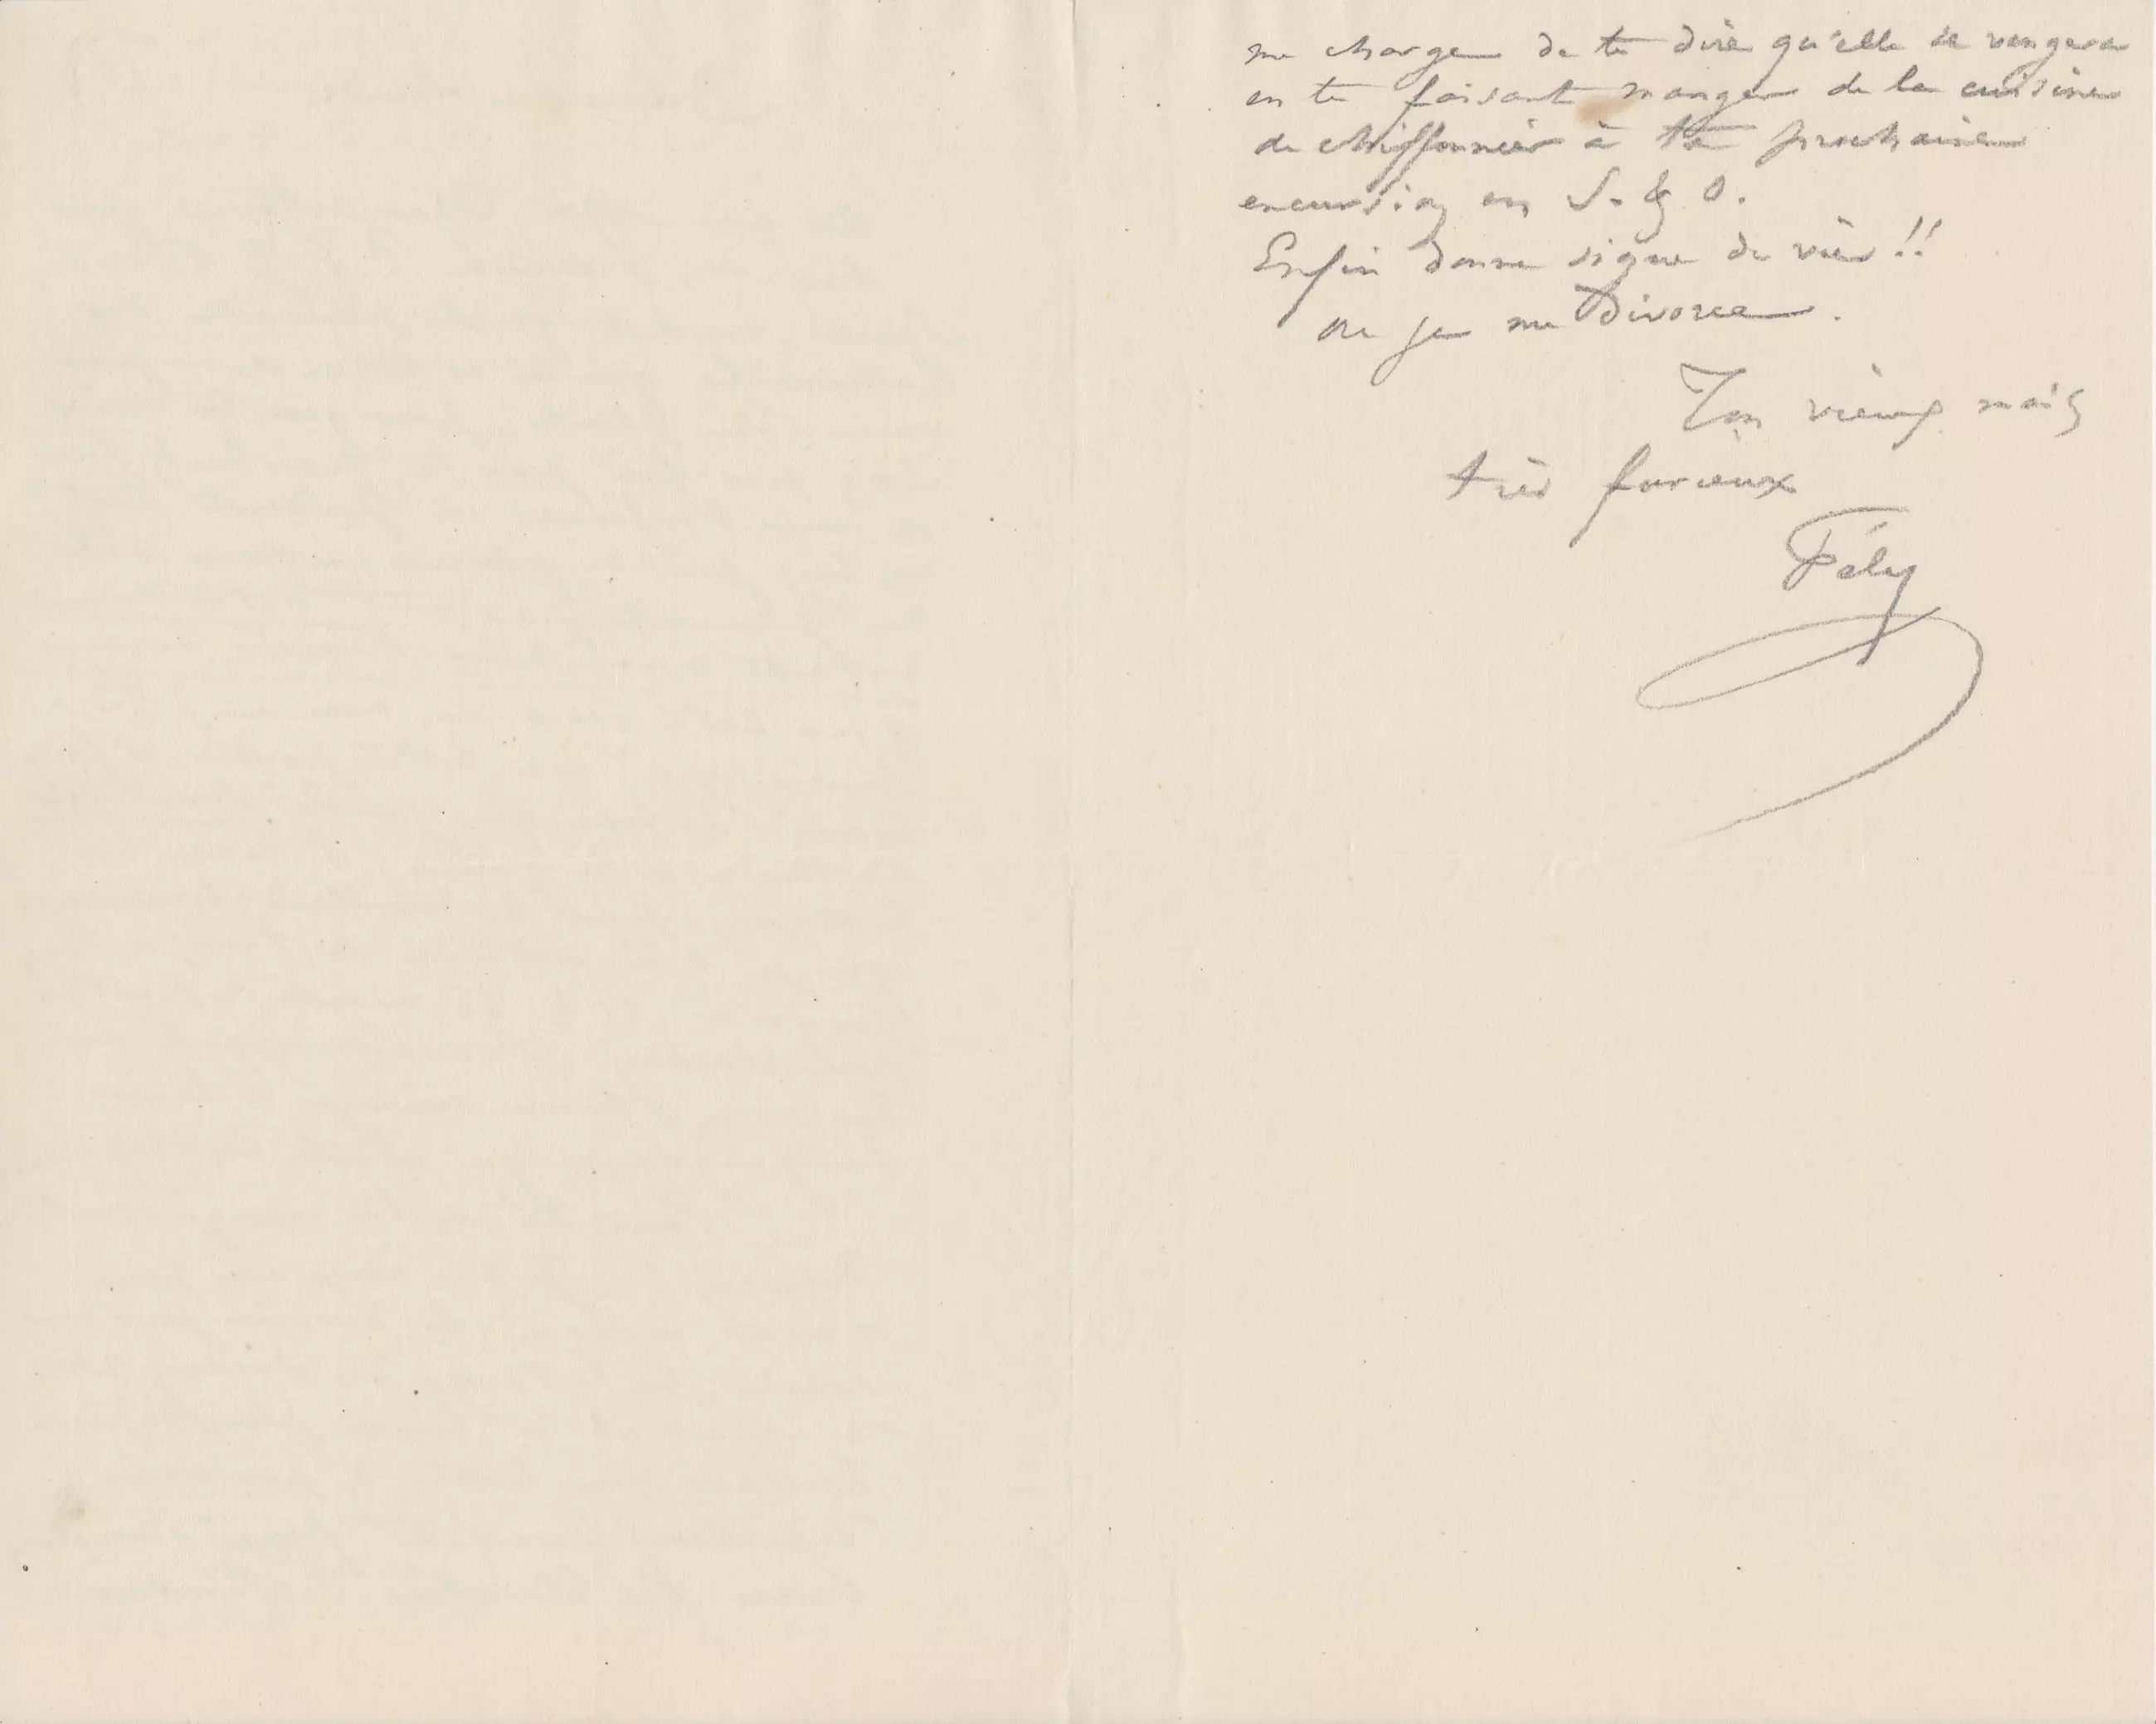 me charge de te dire qu'elle se vengera
en te faisant manger de la cuisine
de chiffonnier à ta prochaine
excursion en S. & O.
Enfin donne signe de vie !!
ou je me Divorce.
Ton vieux mais
très furieux
Fély